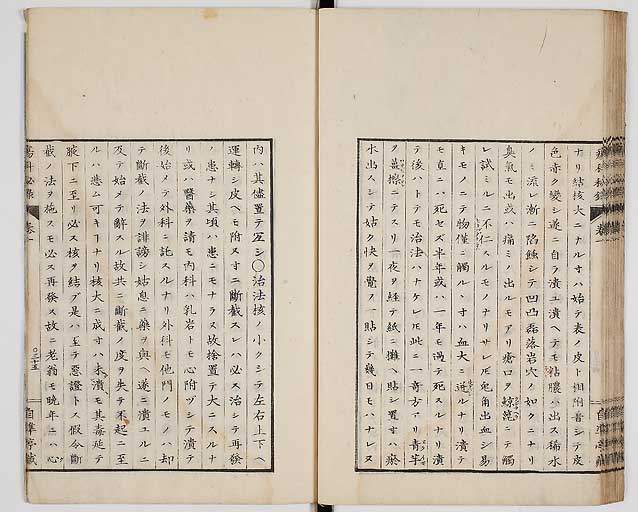 ナリ結核大ニナルオハ始テ表ノ皮ト相附着シテ皮
色赤ク變シ遂ニ自ラ潰ユ潰ヘテモ粘膿ハ出ス稀水
ノミ流レ漸ニ陷蝕シテ凹凸磊落岩穴ノ如クニナリ
臭氣モ出或ハ痛ミノ出ルモアリ瘡口ヲ鯨鬚ニテ觸
レ試ミルニ不仁スルモノナリサレ𪜈兎角出血シ易
キモノニテ物僅ニ觸ル丶オハ血大ニ迸ルナリ潰
モ直ニハ死セズ半年或ハ一年モ過テ死スルナリ潰
テ後ハトテモ治法ハナケレ𪜈此ニ一奇方アリ青芋
ヲ擦ニテスリ一夜ヲ経テ紙ニ攤ヘ貼シ置オハ瘀
水出スシテ姑ク快ヲ覺フ一貼シテ幾日モハナレヌ
瘍科秘錄 卷一
自準亭藏
内ハ其儘置テ宜シ〇治法核ノ小クシテ左右上下ヘ
運轉シ皮ヘモ附ヌオニ斷截スレハ必ス治シテ再發
ノ患ナシ其頃ハ患ニモナラヌ故捨置テ大ニスルナ
リ或ハ醫藥ヲ請モ内科ハ乳岩トモ心附ヅシテ潰テ
後始メテ外科ニ託スルナリ外科モ他門ノモノハ却
テ斷截ノ法ヲ誹謗シ姑息ニ藥ヲ與ヘ遂ニ潰ユルニ
及テ始メテ辭スル故共ニ斷截ノ度ヲ失テ不起ニ至
ルハ悲ム可キ𬼀ナリ核大ニ成オハ未潰モ其毒延テ
腋下ニ至リ必ス核ヲ結ブ是ハ至テ惡證トス假令斷
截ノ法ヲ施スモ必ス再發ス故ニ老翁モ晩年ニハ心
瘍科秘錄 卷一
〇三十五
自準亭藏